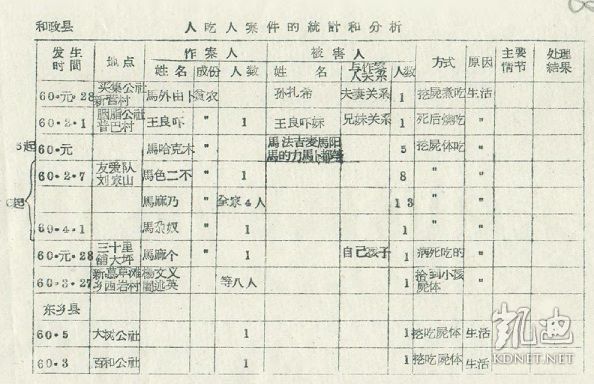 和政县 人吃人案件的統計和分析
发生時間 地点 作案人 被害人 方式 原因 主要情节 处理結果
姓名 成份 人数 姓名 与作案人关系 人数
60·元·28 买集公社新晋村 馬外由卜 貧农 孙扎希 夫妻关系 1 挖屍煮吃 生活
60·2·1 胭脂公社普巴村 王良吓 " 1 王良吓妹 兄妹关系 1 死后煽吃 "
60·元 馬哈克木 " 馬法吉麦馬阳 5 挖屍体吃 "
60·2·7 友爱队刘家山 馬色二不 " 1 8 " "
馬麻乃 " 全家4人 13 " "
60·4·1 馬奴 " 1 1 " "
60·元·28 三十里鋪大坪 馬麻个 " 1 自己孩子 1 病死吃的 "
60·3·27 新 草滩乡西岩村 楊文义 英 等八人 拾到小孩屍体 "
东乡县
60·5 大树公社 1 1 挖吃屍体 生活
60·3 百和公社 1 1 挖吃屍体 生活
凱迪
KDNET.NET